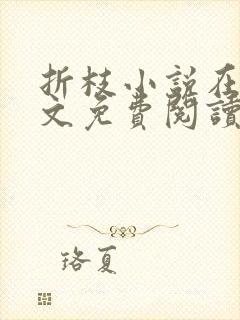 折枝小说在
文免費閱讀
珞夏